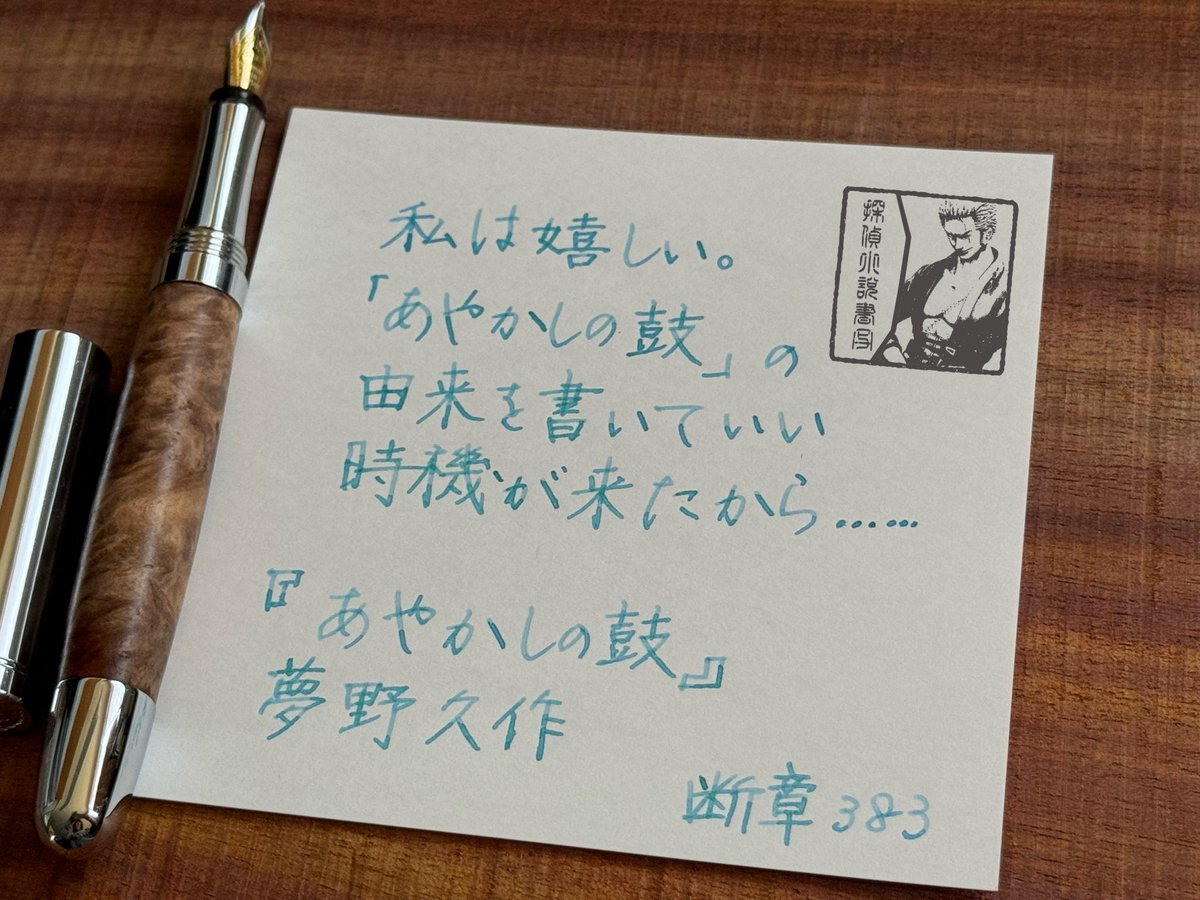 私は嬉しい。
「あやかしの鼓」の
由来を書いていい
時機が来たから……
『あやかしの鼓』
夢野久作
断章383
探偵小説書写